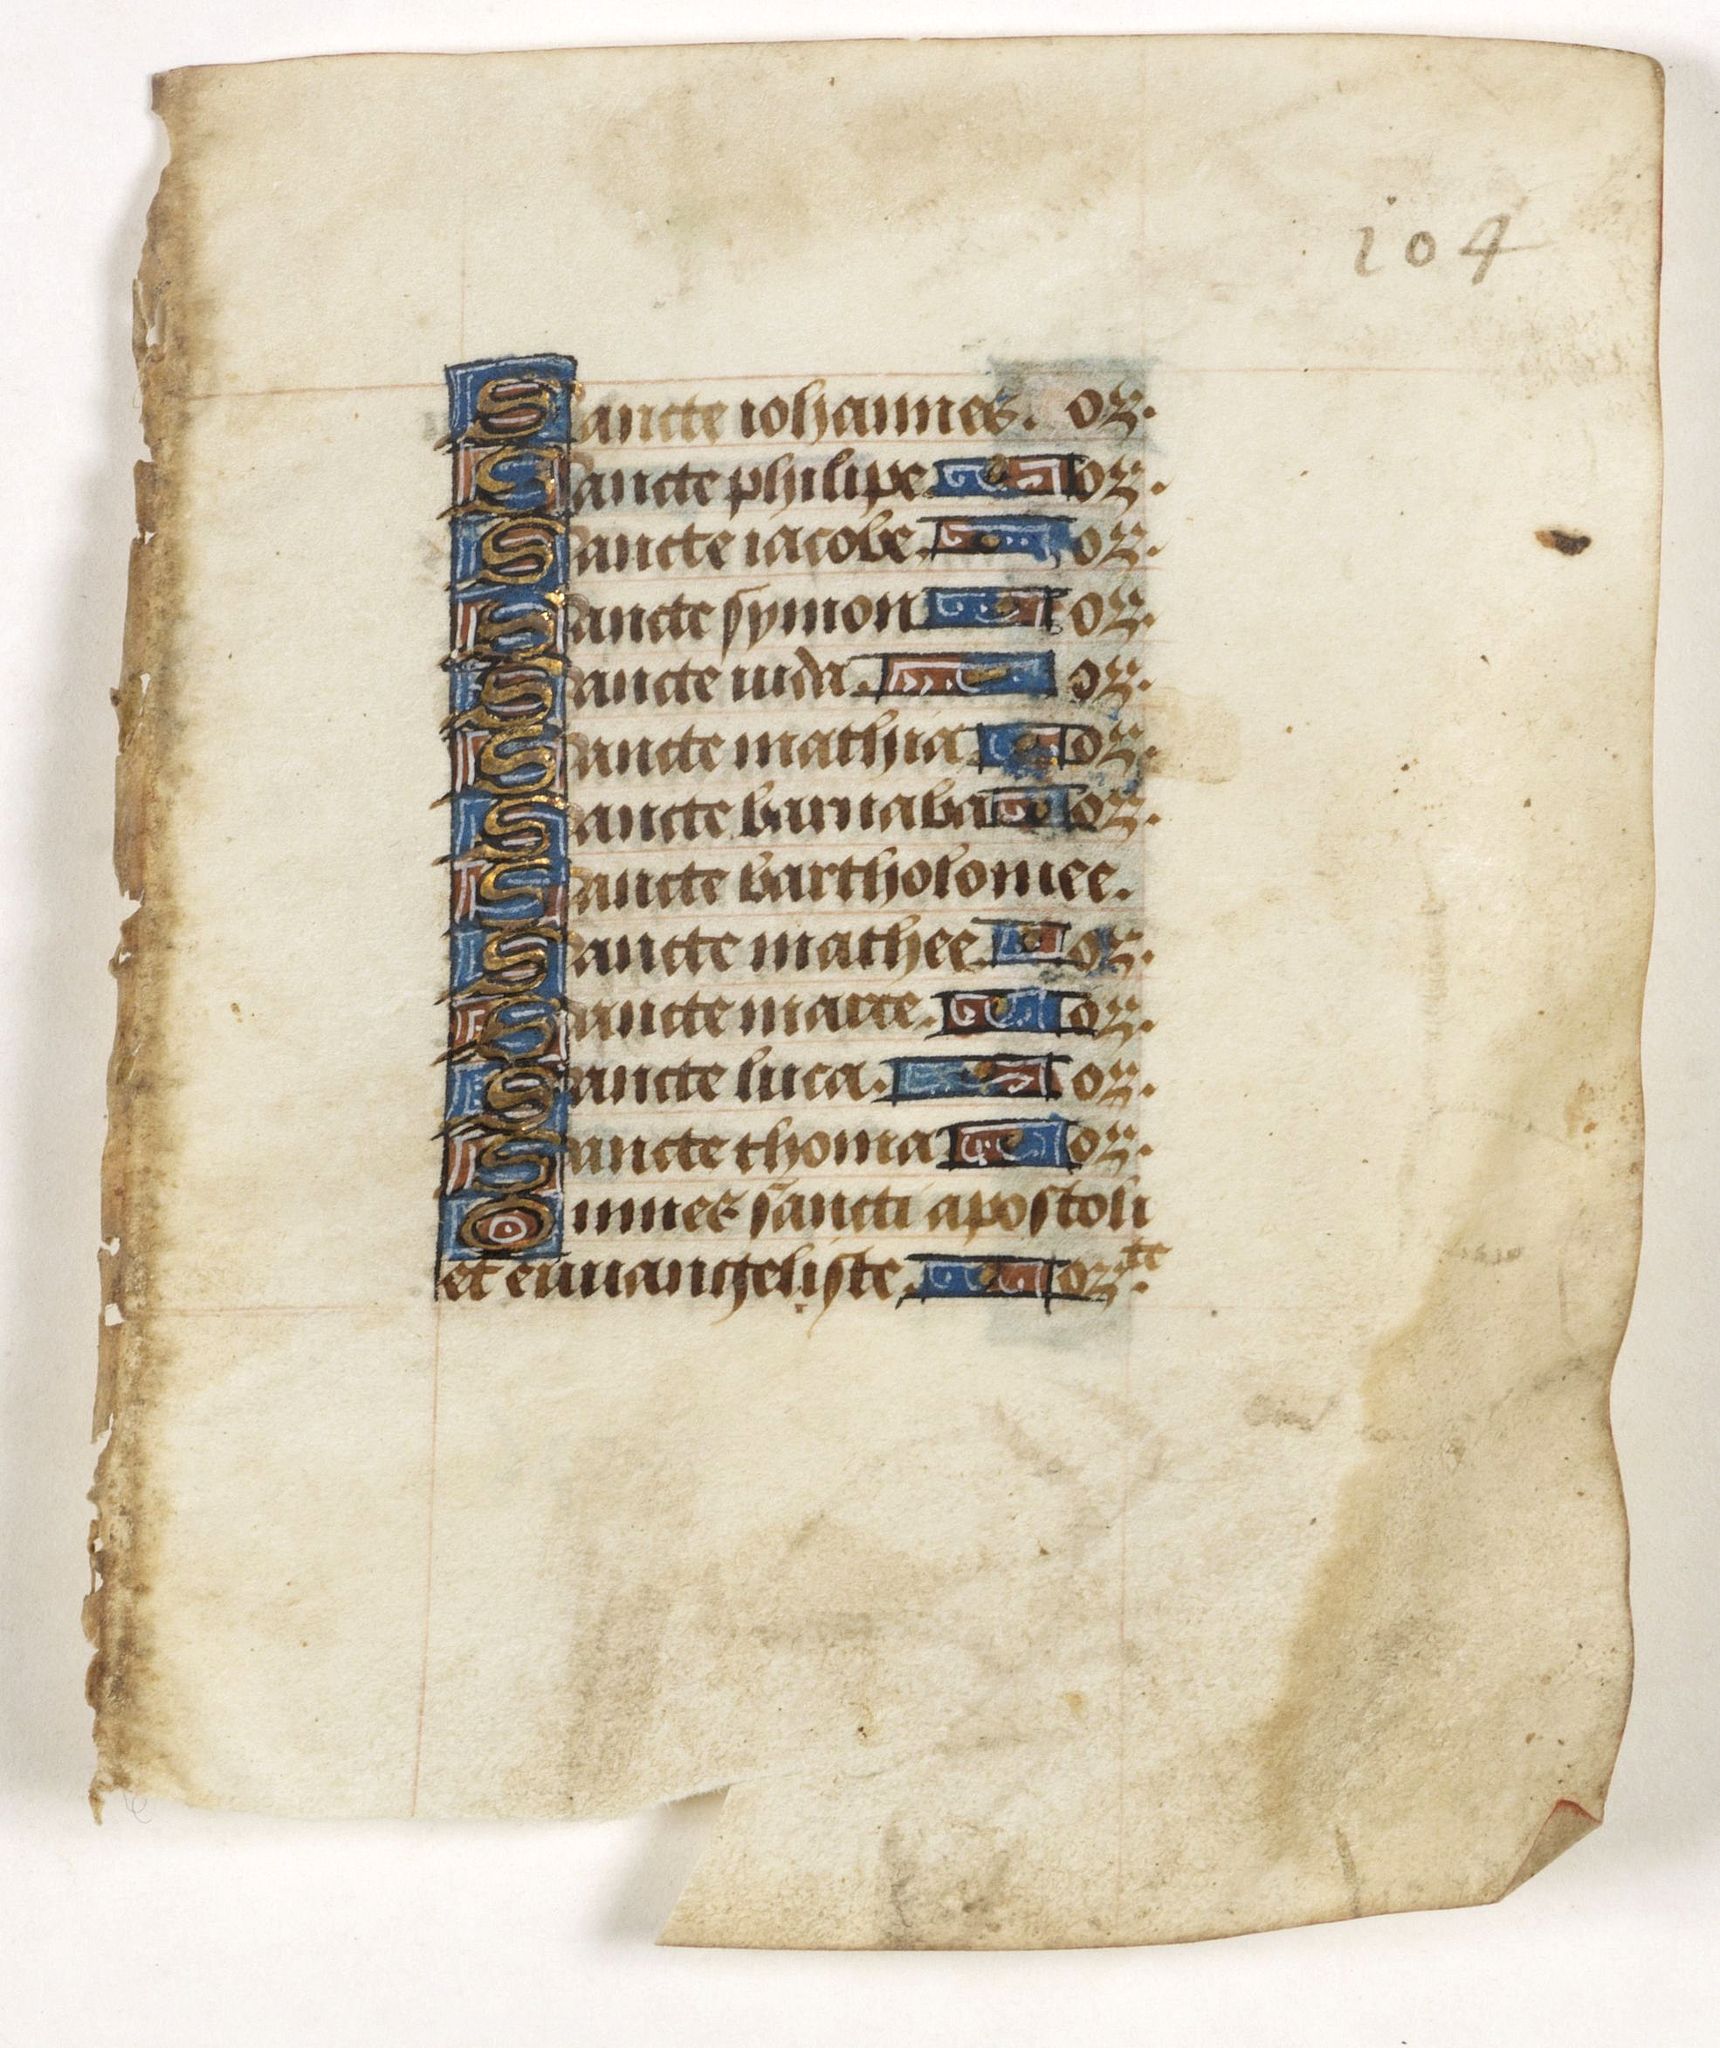 104
Sancte iohannes. oꝶ.
Sancte philipe. oꝶ.
Sancte iacobe. oꝶ.
Sancte symon oꝶ.
Sancte iuda. oꝶ.
Sancte mathia. oꝶ.
Sancte barnaba oꝶ.
Sancte bartholomee.
Sancte mathee. oꝶ.
Sancte marce. oꝶ.
Sancte luca. oꝶ.
Sancte thoma oꝶ.
Omnes sancti apostoli
et euuangeliste. oꝶte.